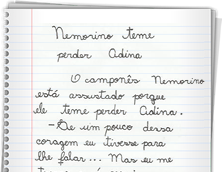 Nemorino teme
perder Adina
O camponês Nemorino
está assustado porque
ele teme perder Adina.
-Se um pouco dessa
coragem eu tivesse para
lhe falar... Mas eu me